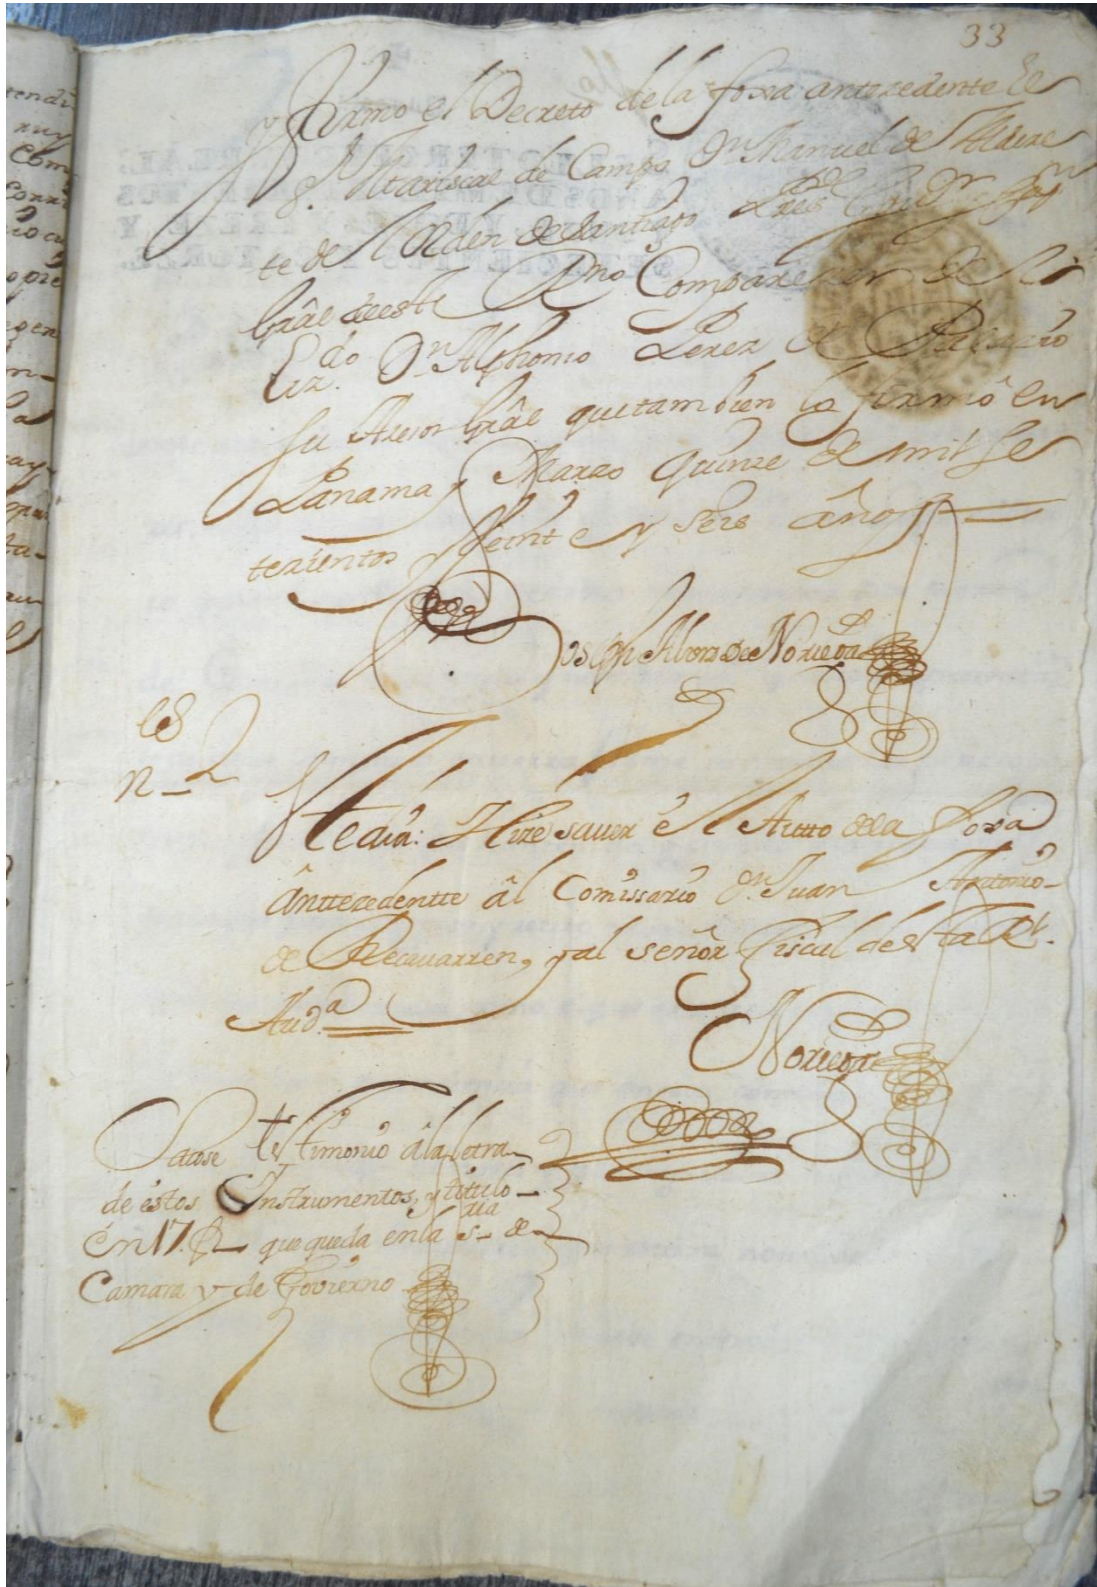 33
y firmo el Decreto dela foxa antezedente el
S.r Mariscal de Campo Dn Manuel de Aldere
te del orden de Santiago Pres.te Gov.or y Cap.n
Gral de este Rno Comparezer de el
Liz.do Dn Alphonso Perez de
su Asesor Gral que tambien lo firmô en
Panama y Marzo quinze de mil se
tezientos Veinte y seis años
Joseph Alvarz de Noriega
n_2
Este dia: Hize saver él Autto dela foxa
ânttezedentte âl Comissario Dn. Juan Antonio
de Recavarren, y al señor fiscal desta Rl.
Aud.a
Noriega
Sacose testimonio âla letra
de éstos Instrumentos, y titulo
én 17. f que queda en la s_ria de
Camara y de Govierno